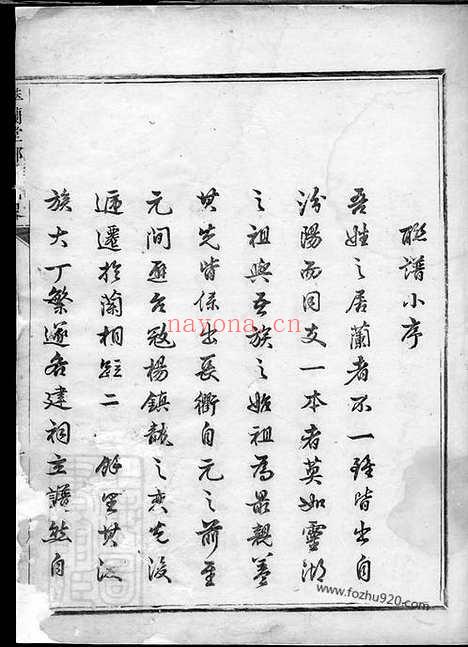 聯譜小序
吾姓之居蘭者不一雖皆出自
汾陽而同支一本者莫如靈湖
之祖與吾族之始祖為最親蓋
其先皆係出長衢自元之前至
元間避台寇楊鎮龍之變先後
遞遷於蘭相距二 餘里其派
族大丁繁遂各建祠立譜然自
蘭堂郭
nayona.cn
www.fozhu920.com